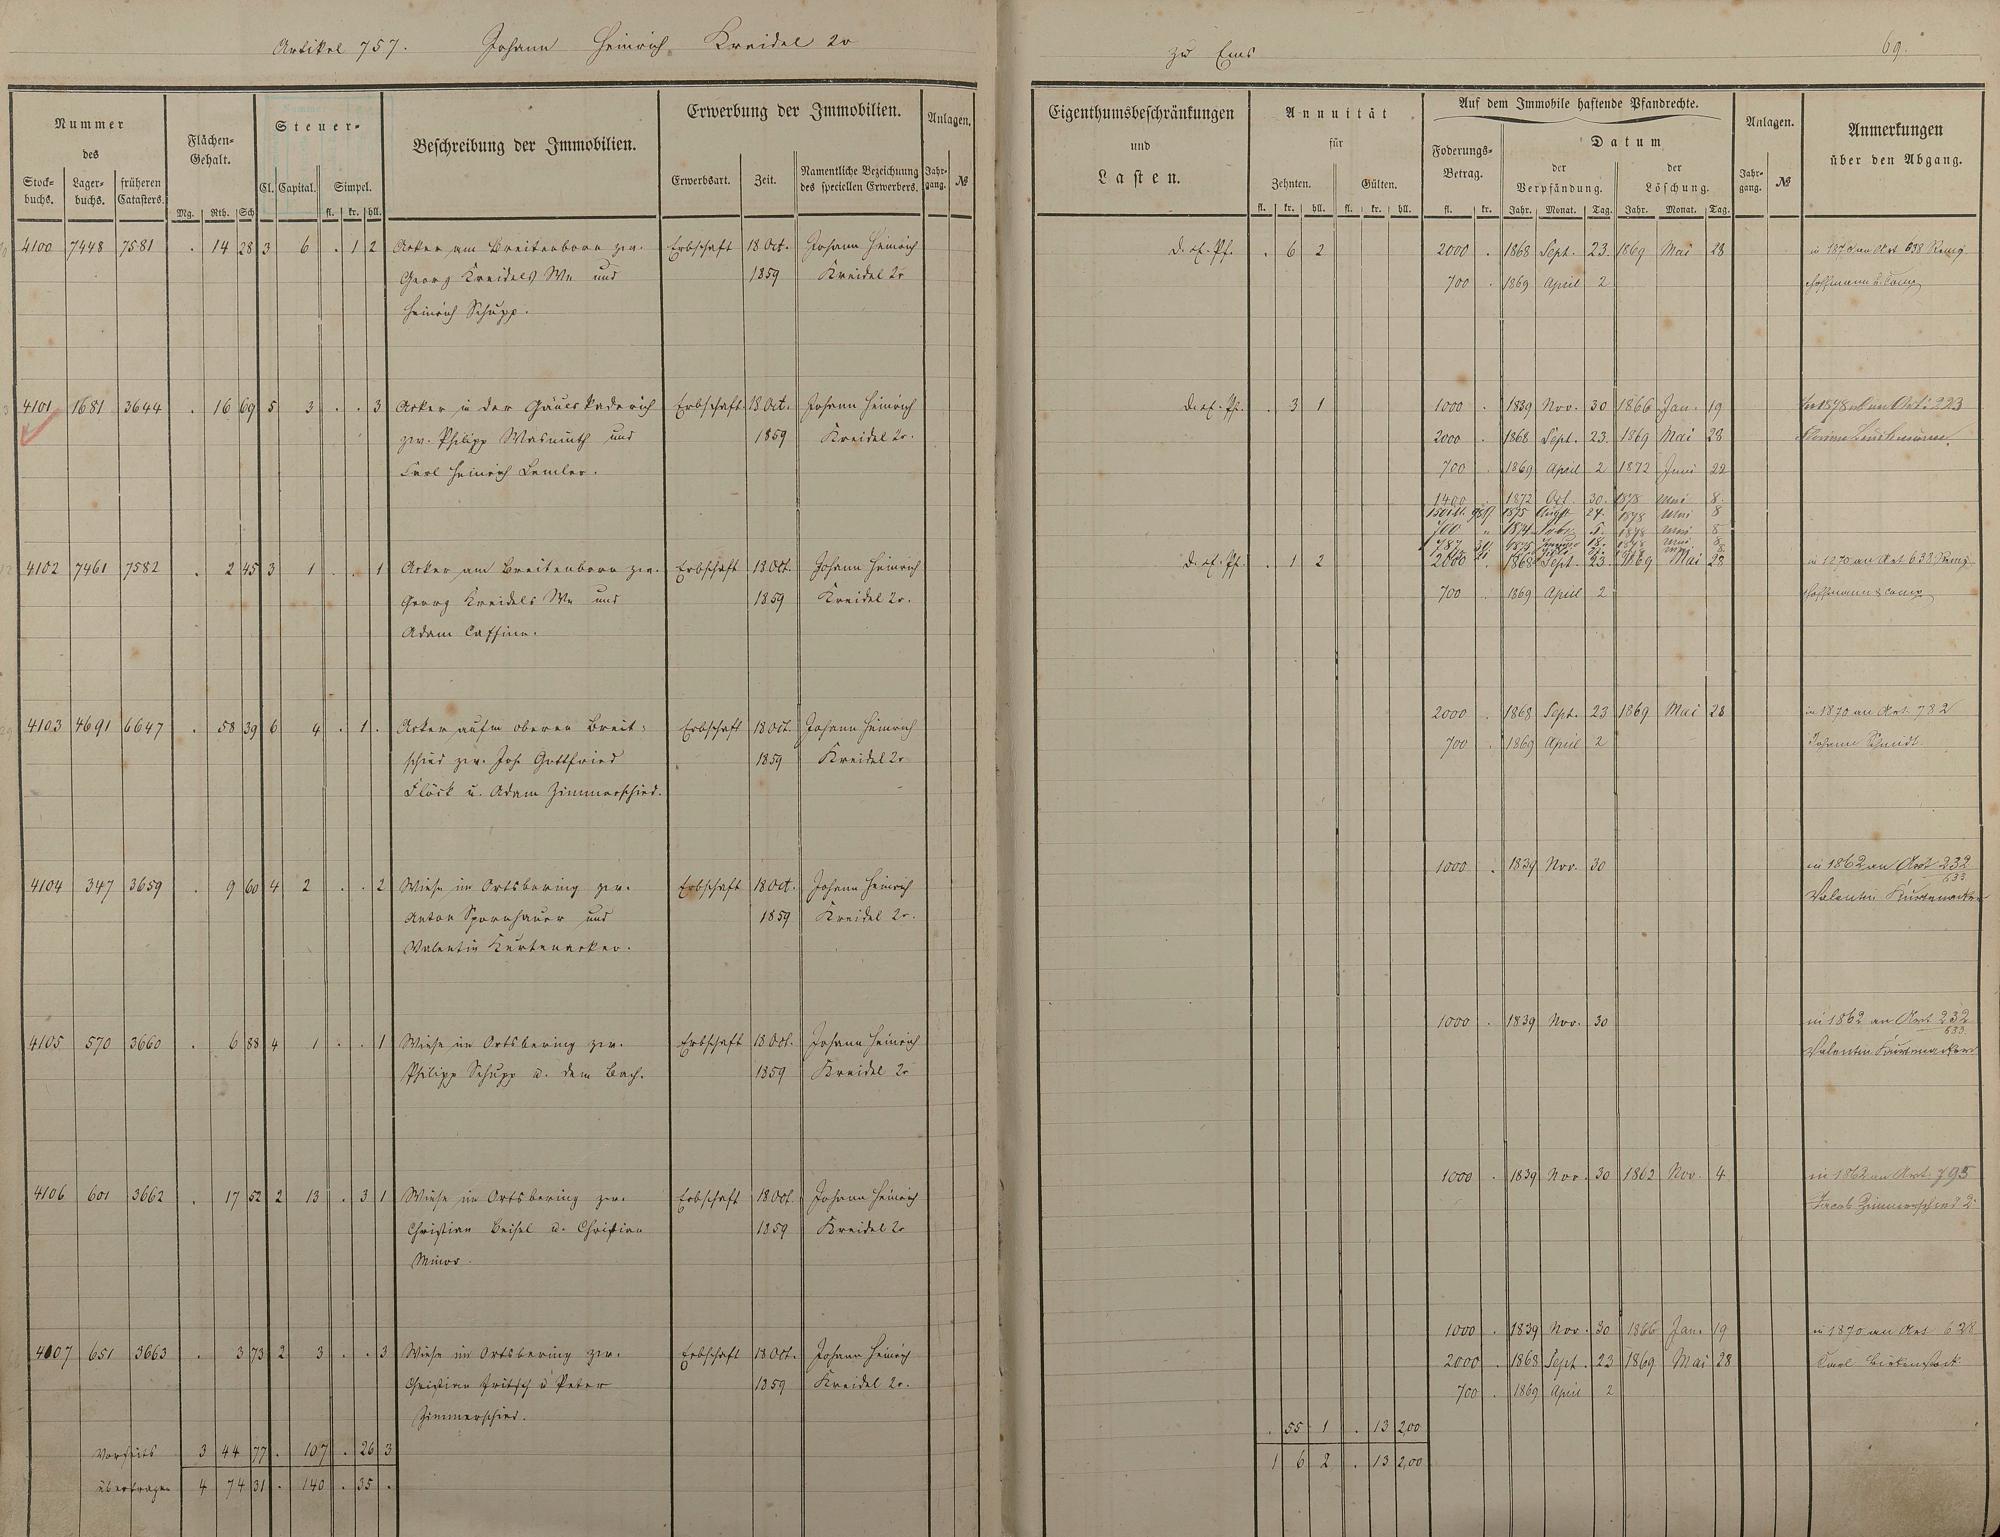 Artikel 757. Johann Heinrich Kreidel 2r zu Ems 69.
Nummer
des
Stock-
buchs.
Lager-
buchs.
früheren
Catasters.
Flächen-
Gehalt.
Mg. Rth. Sch.
Steuer-
Cl. Capital. Simpel.
fl. kr. hll.
Beschreibung der Immobilien.
Erwerbung der Immobilien.
Erwerbsart. Zeit.
Namentliche Bezeichnung
des speciellen Erwerbers.
Anlagen.
Jahr-
gang. №
Eigenthumsbeschränkungen
und
Lasten.
Annuität
für
Zehnten. Gülten.
fl. kr. hll. fl. kr. hll.
Auf dem Immobile haftende Pfandrechte.
Foderungs-
Betrag.
fl. kr.
Datum
der
Verpfändung.
der
Löschung.
Jahr. Monat. Tag. Jahr. Monat. Tag.
Anlagen.
Jahr-
gang. №
Anmerkungen
über den Abgang.
4100 7448 7581 . 14 28 3 6 . 1 2 Acker am Breitenborn zw. Erbschaft 18 Oct. Johann Heinrich d. ef. Pf. . 6 2 2000 . 1868 Sept. 23. 1869 Mai 28 in 1870 an Art 638 Remy
Georg Kreidels We und 1859 Kreidel 2r 700 . 1869 April 2 Hoffmann & Comp
Heinrich Schupp.
4101 1681 3644 . 16 69 5 3 . . 3 Acker in der Gäuls Kaderich Erbschaft 18 Oct. Johann Heinrich d. ef. Pf. . 3 1 1000 . 1839 Nov. 30 1866 Jan. 19 In 1878 an Art: 223
zw. Philipp Wasmuth und 1859 Kreidel 2r. 2000 . 1868 Sept. 23. 1869 Mai 28
Carl Heinrich Lemler. 700 . 1869 April 2 1872 Juni 22
1400 1872 Oct. 30. 1878 Mai 8.
1875 Aug 24. 1878 Mai 8
700 1878 Mai 8
4102 7461 7582 . 2 45 3 1 . . 1 Acker am Breitenborn zw. Erbschaft 18 Oct. Johann Heinrich d. ef. Pf. . 1 2 2000 . 1868 Sept. 23. 1869 Mai 28 in 1870 an Art 638 Remy
Georg Kreidels We und 1859 Kreidel 2r. 700 . 1869 April 2 Hoffmann & Comp
Adam Caffine.
4103 4691 6647 . 58 39 6 4 . 1 . Acker aufm oberen Breit- Erbschaft 18 Oct. Johann Heinrich 2000 . 1868 Sept. 23 1869 Mai 28 in 1870 an Art. 782
schied zw. Joh. Gottfried 1859 Kreidel 2r 700 . 1869 April 2 Johann Schmidt.
Flöck u. Adam Zimmerschied.
4104 347 3659 . 9 60 4 2 . . 2 Wiese im Ortsbering zw. Erbschaft 18 Oct. Johann Heinrich 1000 . 1839 Nov. 30 in 1862 an Art 232
633
Anton Spornhauer und 1859 Kreidel 2r. Valentin Kurtenacker
Valentin Kurtenacker.
4105 570 3660 . 6 88 4 1 . . 1 Wiese im Ortsbering zw. Erbschaft 18 Oct. Johann Heinrich 1000 . 1839 Nov. 30 in 1862 an Art 232
633.
Philipp Schupp u. dem Bach. 1859 Kreidel 2r Valentin Kurtenacker
4106 601 3662 . 17 52 2 13 . 3 1 Wiese im Ortsbering zw. Erbschaft 18 Oct. Johann Heinrich 1000 . 1839 Nov. 30 1862 Nov. 4 in 1862 an Art. 795
Christian Beisel u. Christian 1859 Kreidel 2r Jacob Zimmerschied 2r
Minor.
4107 651 3663 . 3 73 2 3 . . 3 Wiese im Ortsbering zw. Erbschaft 18 Oct. Johann Heinrich 1000 . 1839 Nov. 30 1866 Jan. 19 in 1870 an Art 628
Christian Fritsch u Peter 1859 Kreidel 2r. 2000 . 1868 Sept. 23 1869 Mai 28 Carl Birkenstock.
Zimmerschied. 700 . 1869 April 2
. 55 1 . 13 2,00
Vorseits 3 44 77 . 107 . 26 3
1 6 2 . 13 2,00
übertragen 4 74 31 . 140 . 35 .